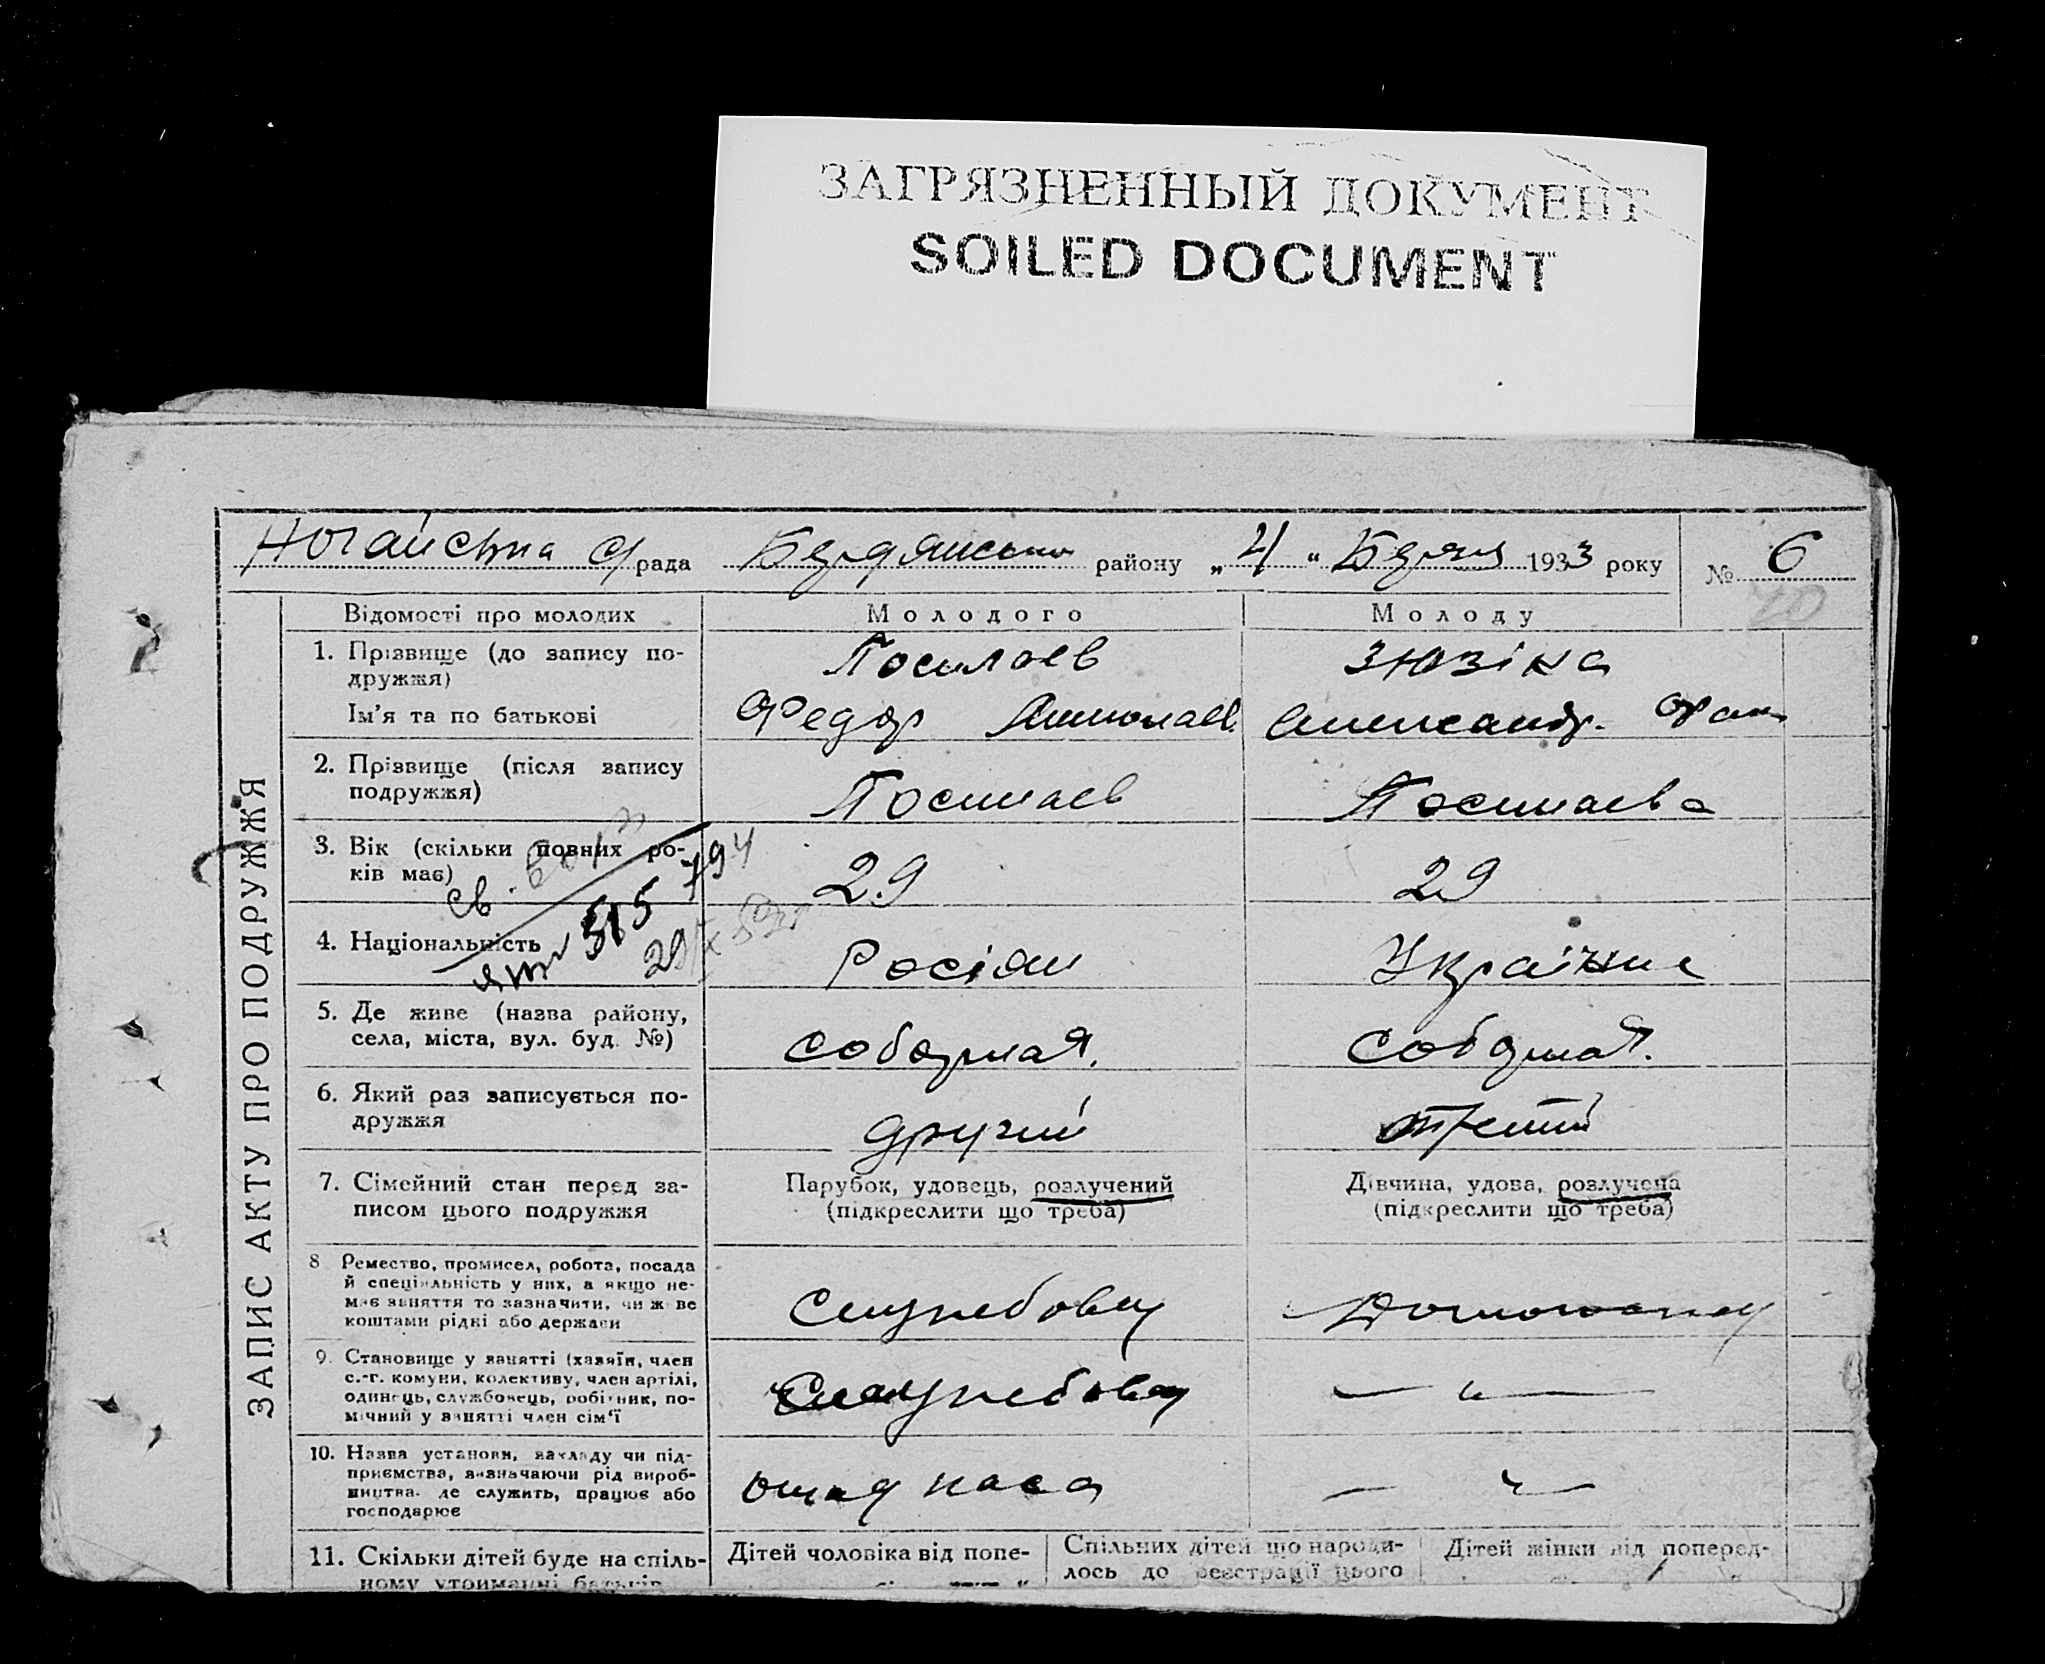 ЗАГРЯЗНЕННЫЙ ДОКУМЕНТ
SOILED DOCUMENT
Ногайська с/рада Бердянського району „21“ Березня 1933 року № 6
70
ЗАПИС АКТУ ПРО ПОДРУЖЖЯ
Відомості про молодих Молодого Молоду
1. Прізвище (до запису по-
дружжя)
Зюзіна
Ім'я та по батькові
Федор Александр.
2. Прізвище (після запису
подружжя)
3. Вік (скільки повних ро-
ків має)
29 29
св.
515794
4. Національність
Росіян Українка
5. Де живе (назва району,
села, міста, вул. буд. №)
6. Який раз записується по-
дружжя
другий третій
7. Сімейний стан перед за-
писом цього подружжя
Парубок, удовець, розлучений
(підкреслити що треба)
Дівчина, удова, розлучена
(підкреслити що треба)
8 Ремество, промисел, робота, посада
й спеціяльність у них, а якщо не-
має заняття то зазначити, чи живе
коштами рідні або держави
Службовец
9. Становище у занятті (хазяїн, член
с.-г. комуни, колективу, член артілі,
одинець, службовець, робітник, по-
мічний у занятті член сім'ї
Службовец — " —
10. Назва установи, закладу чи під-
приємства, зазначаючи рід вироб-
ництва, де служить, працює або
господарює
ощад каса — " —
11. Скільки дітей буде на спіль-
ному утриманні батьків
Дітей чоловіка від попе-
Спільних дітей що народи-
лось до реєстрації цього
Дітей жінки від поперед-